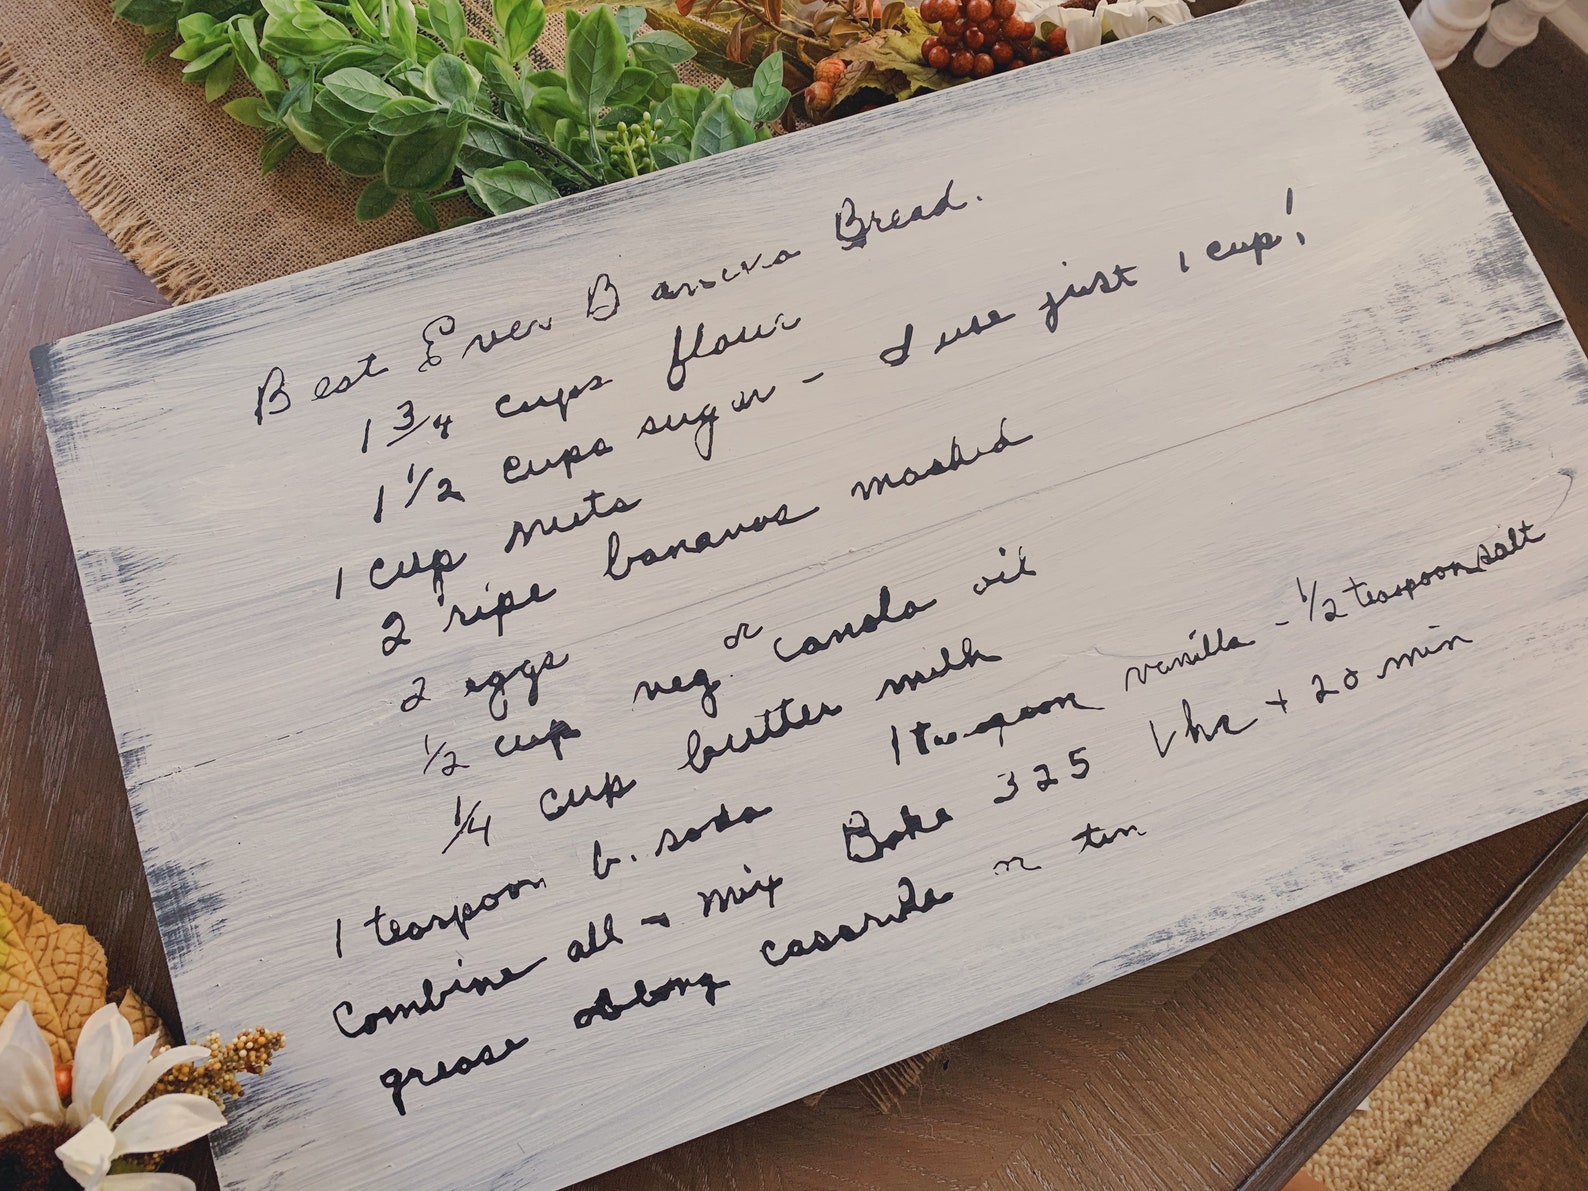 Best Ever Banana Bread.
1 3/4 cups flour
1 1/2 cups sugar - I use just 1 cup!
1 cup nuts
2 ripe bananas mashed
2 eggs
1/2 cup veg. or canola oil
1/4 cup butter milk
1 teaspoon b. soda 1 teaspoon vanilla - 1/2 teaspoon salt
Combine all - mix Bake 325 1 hr + 20 min
grease oblong casserole or tin